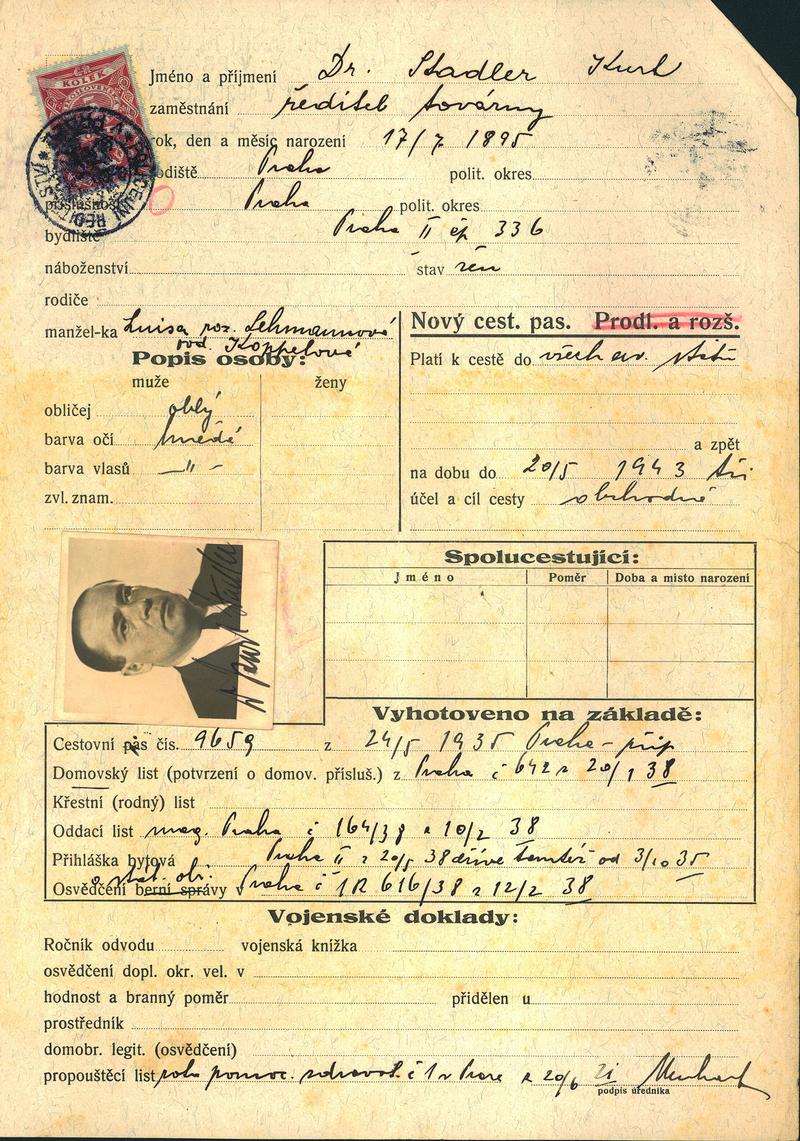 KOLEK
Jméno a příjmení Dr. Stadler Kurt
zaměstnání ředitel továrny
rok, den a měsíc narození 17/7 1895
rodiště Praha polit. okres
příslušnost Praha polit. okres
bydliště Praha II čp 336
náboženství stav žen
rodiče
manžel-ka Luisa roz. Lehmannová
rod. Koppelová
Nový cest. pas. Prodl. a rozš.
Popis osoby:
muže ženy
obličej oblý
barva očí hnědé
barva vlasů —"—
zvl. znam.
Platí k cestě do všech ev. států
a zpět
na dobu do 20/5 1943 tři
účel a cíl cesty obchodně
Spolucestující:
Jméno Poměr Doba a místo narození
Dr Kurt Stadler
Vyhotoveno na základě:
Cestovní pas čís. 9659 z 24/5 1935 Praha-
Domovský list (potvrzení o domov. přísluš.) z Praha č 642 z 20/1 38
Křestní (rodný) list
Oddací list mag. Praha č 164/38 z 10/2 38
Přihláška bytová Praha II z 20/5 38 dříve tamtéž od 3/10 35
a stát. ob.
Osvědčení berní správy v Praha č 1R 616/38 z 12/2 38
Vojenské doklady:
Ročník odvodu vojenská knížka
osvědčení dopl. okr. vel. v
hodnost a branný poměr přidělen u
prostředník
domobr. legit. (osvědčení)
propouštěcí list rota pomoc. zdravot. č 1 v Praze z 20/6 21
podpis úředníka